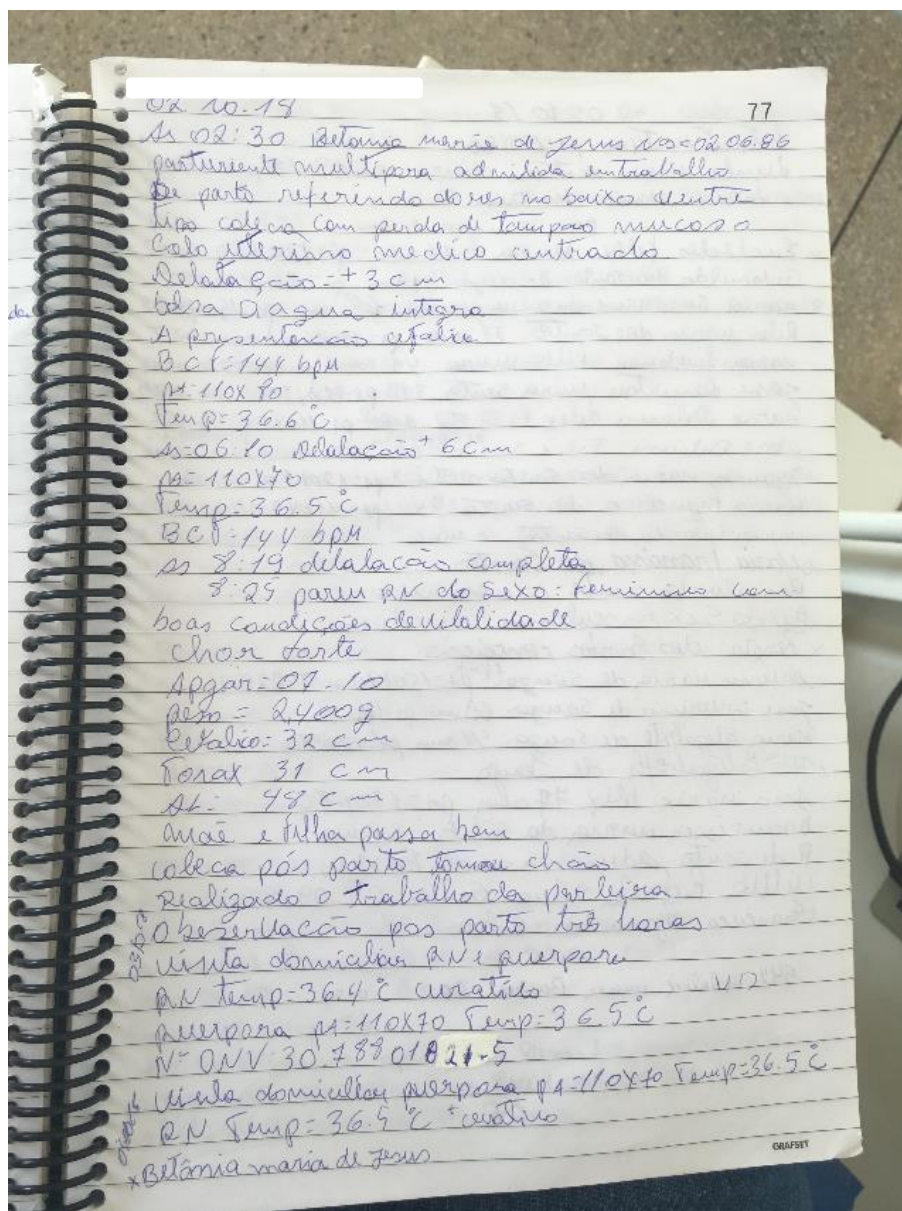 02.10.18
77
As 02:30 Betânia maria de Jesus ND=02.06.86
parturiente multipara admitida em trabalho
De parto referindo dores no baixo ventre
tipo colica com perda de tampao mucoso
Colo uterino medico centrado
Delatação=+3cm
bolsa D agua - integra
A presentacão cefalica
BCF=144 bpM
PA=110x80
Temp=36.6°C
As=06:10 Delatacão+ 6cm
PA=110x70
Temp=36.5°C
BCF=144 bpM
As 8:19 dilatacão completa
8:25 pareu RN do Sexo: Feminino com
boas condições de vitalidade
choro forte
Apgar=07-10
peso = 2,400g
Cefalico: 32 cm
Torax 31 cm
48 cm
mãe e filha passa bem
cabeca pós parto chão
Realizado o trabalho da parteira
Obeservacão pos parto três horas
visita domiciliar RN e puerpora
RN temp=36.4°C curativo
puerpora PA=110x70 Temp=36.5°C
Nº DNV:30.78801821-5
visita domiciliar puerpora PA=110x70 Temp=36.5°C
RN Temp=36.5°C + curativo
x Betânia maria de Jesus
GRAFSET